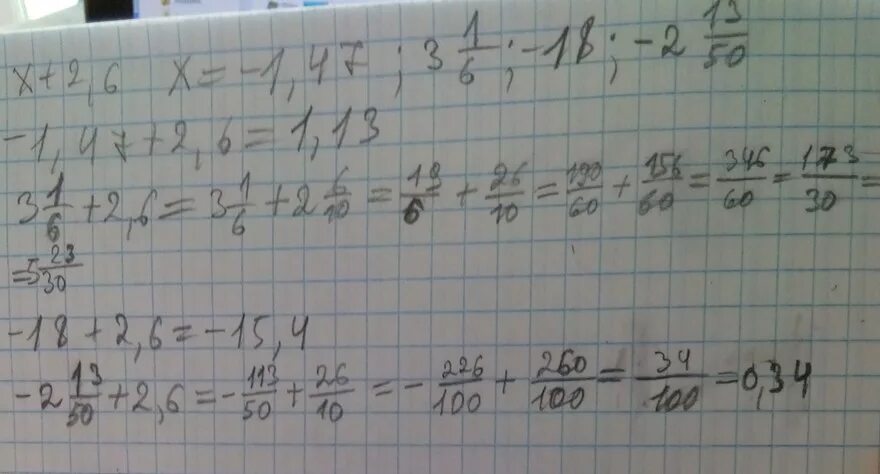 x+2,6 x=-1,47; 3 1/6; -18; -2 13/50
-1,47+2,6=1,13
3 1/6 +2,6=3 1/6 +2 6/10 = 19/6 + 26/10 = 190/60 + 156/60 = 346/60 = 173/30 =
=5 23/30
-18+2,6=-15,4
-2 13/50 +2,6=- 113/50 + 26/10 =- 226/100 + 260/100 = 34/100 =0,34